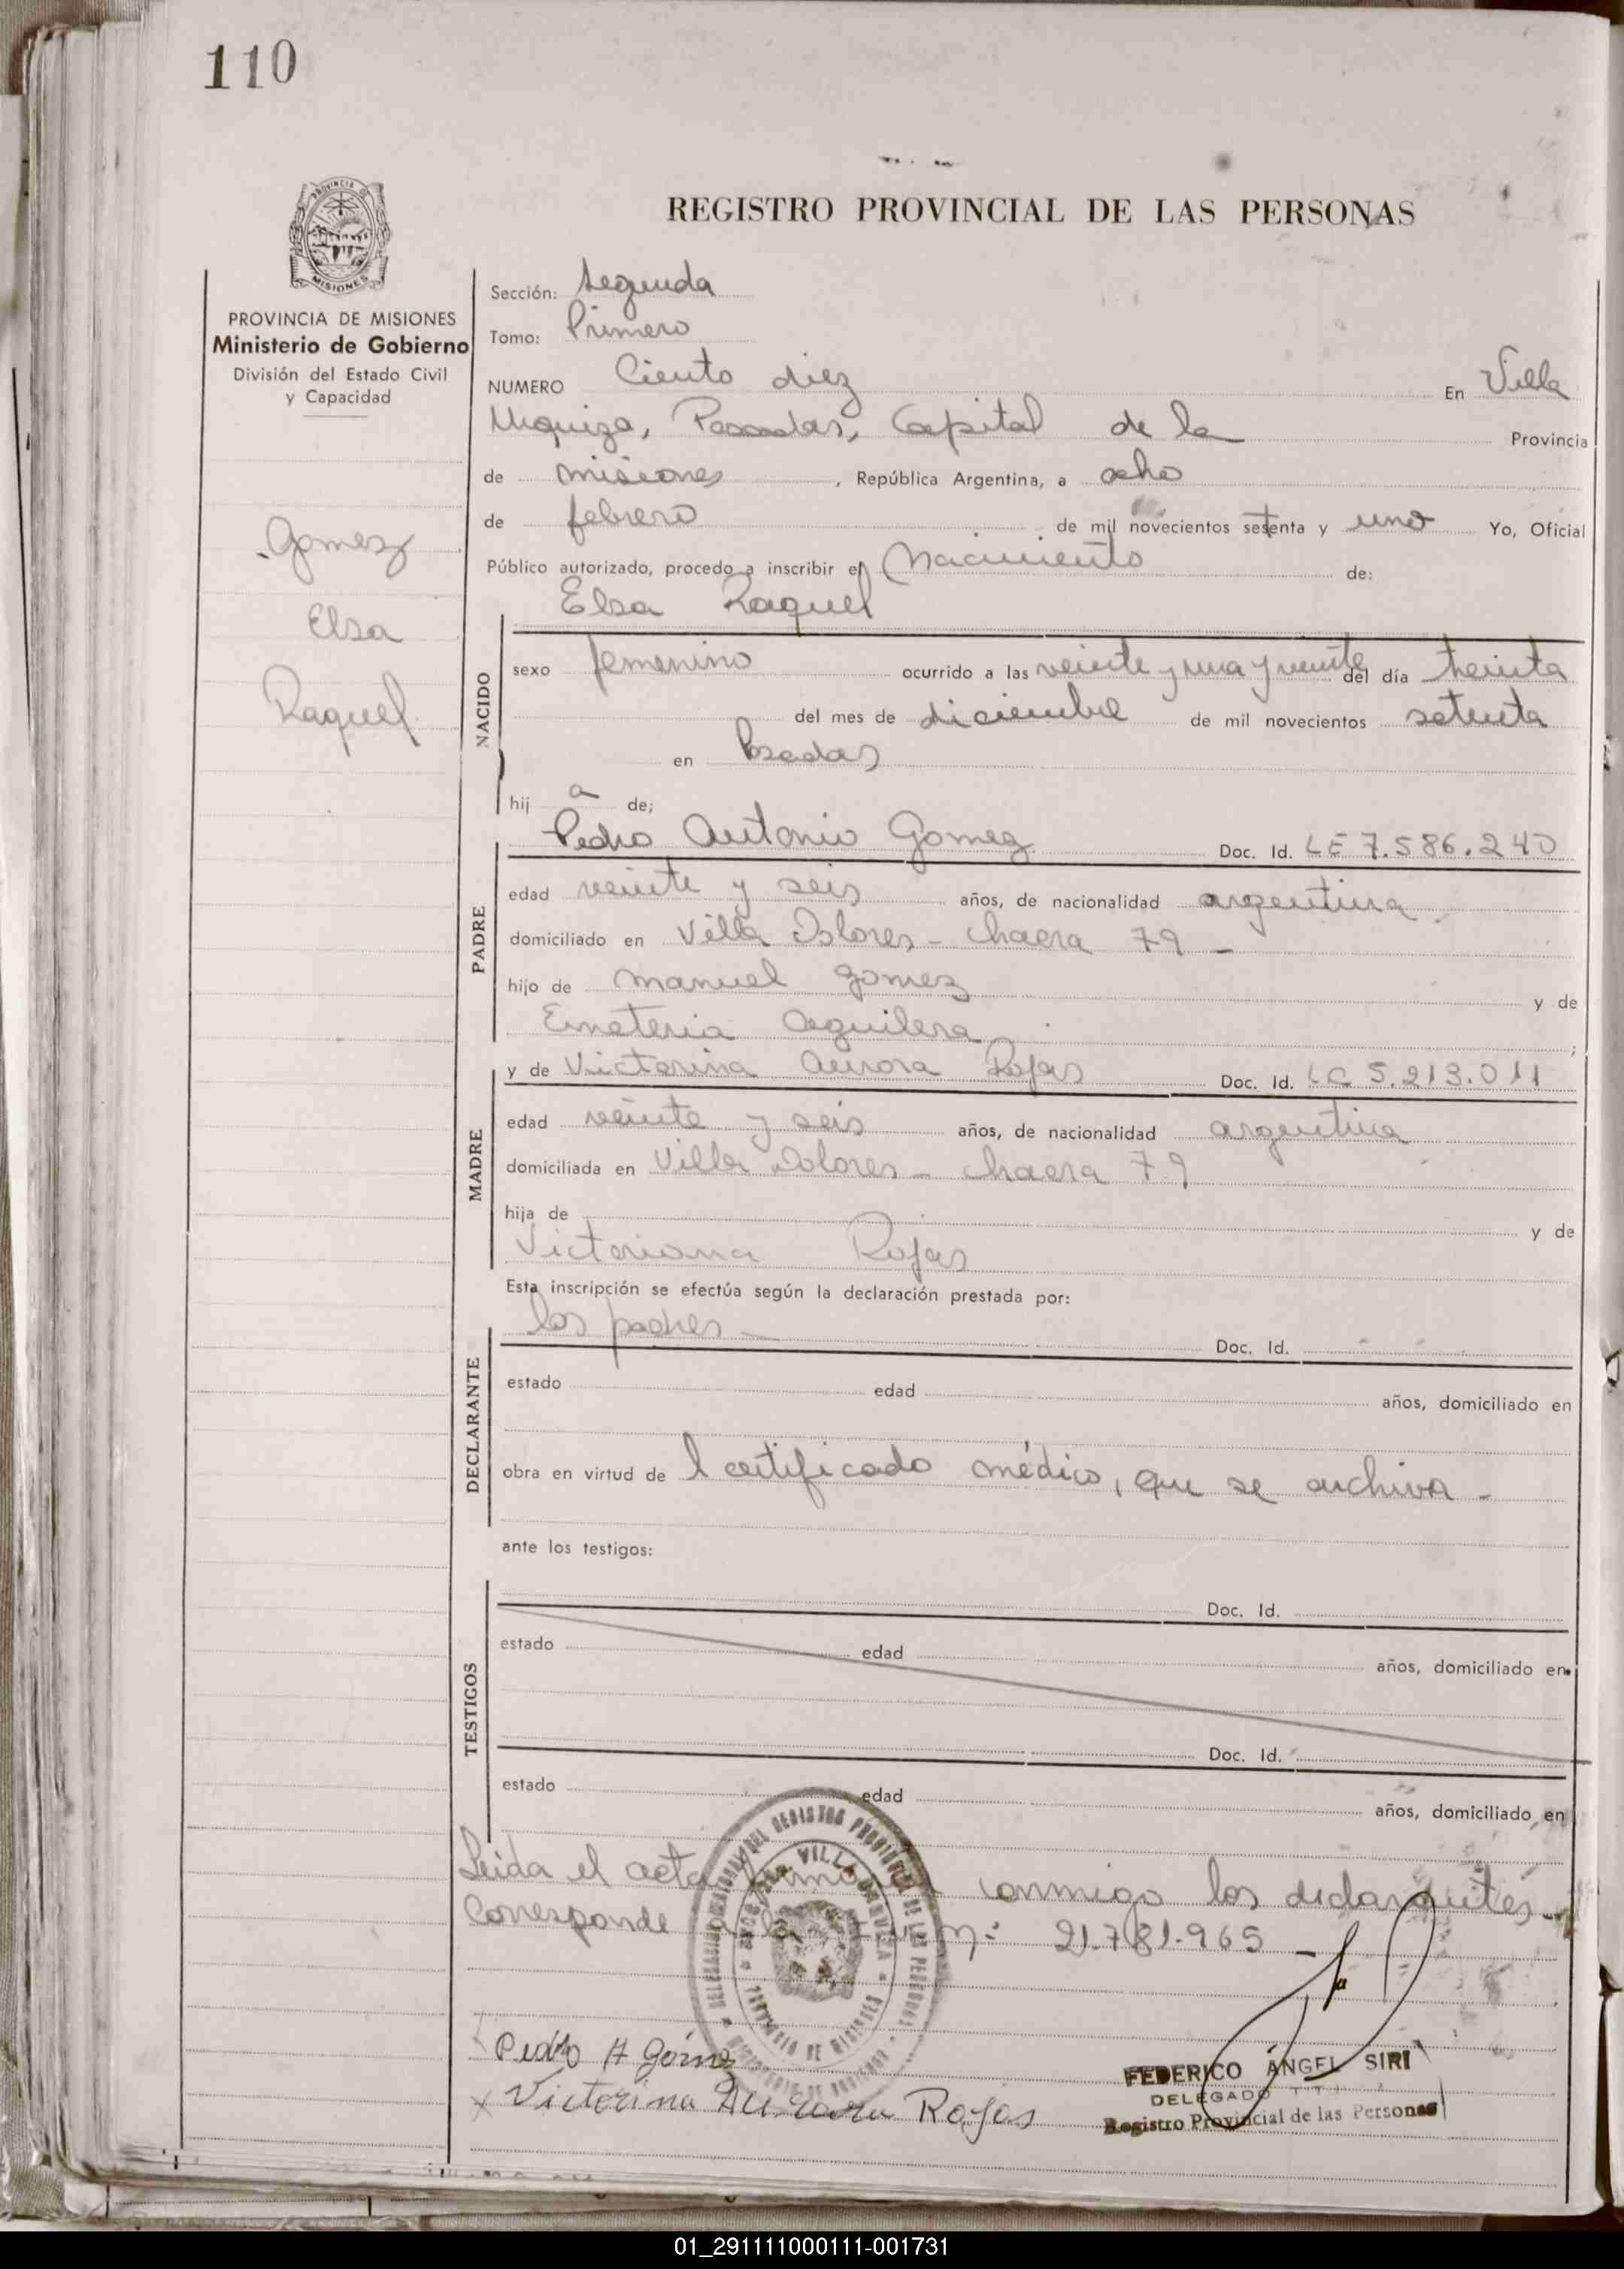 110
REGISTRO PROVINCIAL DE LAS PERSONAS
PROVINCIA DE
MISIONES
PROVINCIA DE MISIONES
Ministerio de Gobierno
División del Estado Civil
y Capacidad
Gomez
Elsa
Raquel
Sección: Segunda
Tomo: Primero
NUMERO Ciento diez En Villa
Urquiza, Posadas, Capital de la Provincia
de misiones, República Argentina, a ocho
de febrero de mil novecientos setenta y uno Yo, Oficial
Público autorizado, procedo a inscribir el Nacimiento de:
Elsa Raquel
NACIDO
sexo femenino ocurrido a las veinte y una y veinte del día treinta
del mes de diciembre de mil novecientos setenta
en Posadas
hij a de;
Pedro Antonio Gomez Doc. Id. LE 7.586.240
PADRE
edad veinte y seis años, de nacionalidad argentina
domiciliado en Villa Dolores - chacra 79 -
hijo de manuel gomez y de
Emeteria Aguilera ;
y de Victorina Aurora Rojas Doc. Id. LC 5.213.011
MADRE
edad veinte y seis años, de nacionalidad argentina
domiciliada en Villa Dolores - chacra 79
hija de y de
Victoriana Rojas
Esta inscripción se efectúa según la declaración prestada por:
los padres - Doc. Id.
DECLARANTE
estado edad años, domiciliado en
obra en virtud de l certificado médico, que se archiva -
ante los testigos:
Doc. Id.
TESTIGOS
estado edad años, domiciliado en
Doc. Id.
estado edad años, domiciliado en
Leida el acta conmigo los declarantes -
Corresponde 21.781.965 -
Pedro A Gómez
Victorina Aurora Rojas
FEDERICO ÁNGEL SIRI
DELEGADO
Registro Provincial de las Personas
01_291111000111-001731